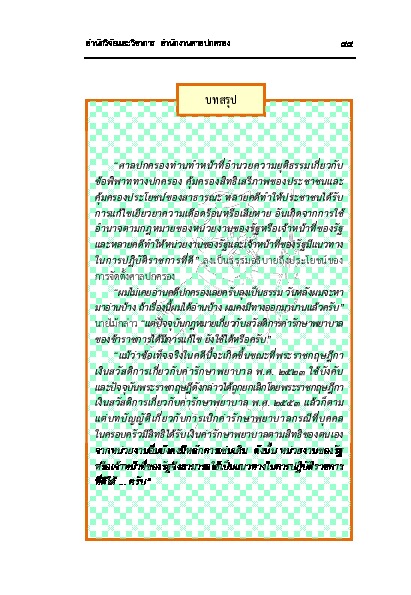 สำนักวิจัยและวิชาการ สำนักงานศาลปกครอง ๔๔
บทสรุป
“ศาลปกครองท่านทำหน้าที่อำนวยความยุติธรรมเกี่ยวกับ
ข้อพิพาททางปกครอง คุ้มครองสิทธิเสรีภาพของประชาชนและ
คุ้มครองประโยชน์ของสาธารณะ หลายคดีทำให้ประชาชนได้รับ
การแก้ไขเยียวยาความเดือดร้อนหรือเสียหาย อันเกิดจากการใช้
อำนาจตามกฎหมายของหน่วยงานของรัฐหรือเจ้าหน้าที่ของรัฐ
และหลายคดีทำให้หน่วยงานของรัฐและเจ้าหน้าที่ของรัฐมีแนวทาง
ในการปฏิบัติราชการที่ดี” ลุงเป็นธรรมอธิบายถึงประโยชน์ของ
การจัดตั้งศาลปกครอง
“ผมไม่เคยอ่านคดีปกครองเลยครับลุงเป็นธรรม วันหลังผมจะหา
มาอ่านบ้าง ถ้าเรื่องนี้ผมได้อ่านบ้าง ผมคงมีทางออกมานานแล้วครับ”
นายไม้กล่าว “แต่ปัจจุบันกฎหมายเกี่ยวกับสวัสดิการค่ารักษาพยาบาล
ของข้าราชการได้มีการแก้ไข ยังใช้ได้หรือครับ”
“แม้ว่าข้อเท็จจริงในคดีนี้จะเกิดขึ้นขณะที่พระราชกฤษฎีกา
เงินสวัสดิการเกี่ยวกับค่ารักษาพยาบาล พ.ศ. ๒๕๒๓ ใช้บังคับ
และปัจจุบันพระราชกฤษฎีกาดังกล่าวได้ถูกยกเลิกโดยพระราชกฤษฎีกา
เงินสวัสดิการเกี่ยวกับค่ารักษาพยาบาล พ.ศ. ๒๕๕๓ แล้วก็ตาม
แต่บทบัญญัติเกี่ยวกับการเบิกค่ารักษาพยาบาลกรณีที่บุคคล
ในครอบครัวมีสิทธิได้รับเงินค่ารักษาพยาบาลตามสิทธิของตนเอง
จากหน่วยงานอื่นยังคงมีหลักการเช่นเดิม ดังนั้น หน่วยงานของรัฐ
หรือเจ้าหน้าที่ของรัฐจึงสามารถใช้เป็นแนวทางในการปฏิบัติราชการ
ที่ดีได้ ... ครับ”